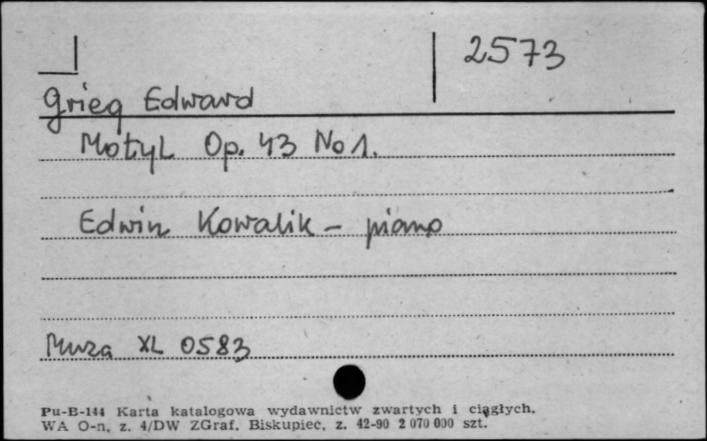 2573
Grieg Edward
Motyl Op. 43 No 1.
Edwin Kowalik - piano
Muza XL 0583
Pu-B-144 Karta katalogowa wydawnictw zwartych i ciągłych.
WA O-n, z. 4/DW ZGraf. Biskupiec, z. 42-90 2 070 000 szt.